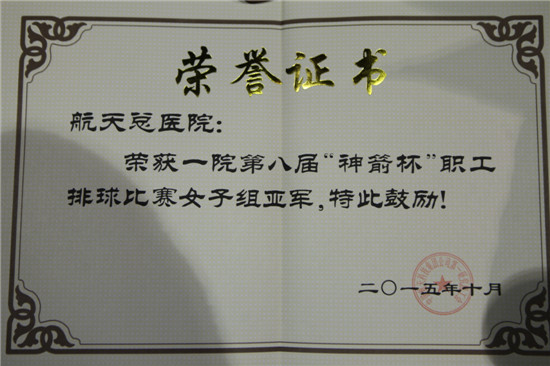 荣誉证书
航天总医院：
荣获一院第八届“神箭杯”职工
排球比赛女子组亚军，特此鼓励！
二〇一五年十月